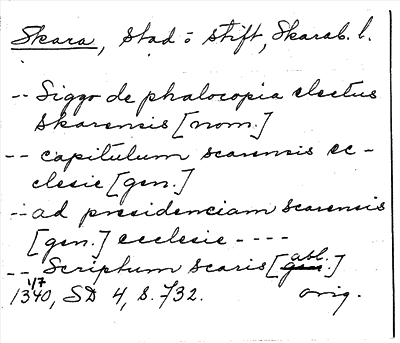 Skara, Stad o stift, Skarab. l.
-- Siggo de phalocopia electus
skarensis [nom.]
-- capitulum scarensis ec-
clesie [gen.]
-- ad presidenciam scarensis
[gen.] ecclesie ----
-- Scriptum scaris [gen. abl.]
1340, 1/7 SD 4, s. 732. orig.